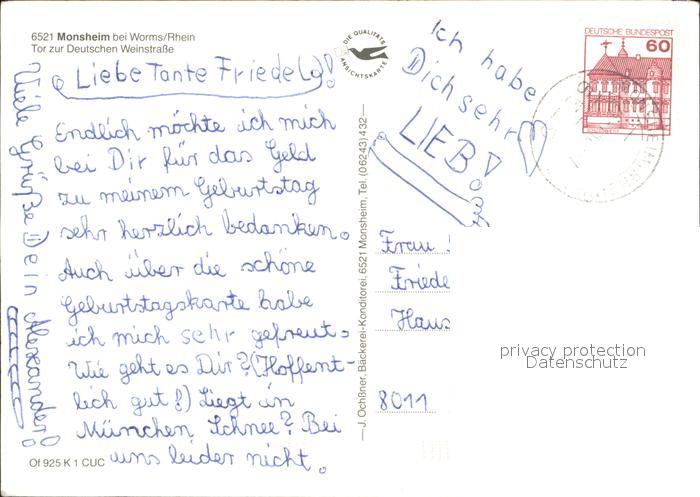 6521 Monsheim bei Worms/Rhein
Tor zur Deutschen Weinstraße
Liebe Tante Friedel!
Endlich möchte ich mich
bei Dir für das Geld
zu meinem Geburtstag
sehr herzlich bedanken.
Auch über die schöne
Geburtstagskarte habe
ich mich sehr gefreut.
Wie geht es Dir? (Hoffent-
lich gut!) Liegt in
München Schnee? Bei
uns leider nicht.
Viele Grüße Dein Alexander!
Of 925 K 1 CUC
DIE QUALITÄTS
ANSICHTSKARTE
J. Ochßner, Bäckerei-Konditorei, 6521 Monsheim, Tel. (06243) 432
Ich habe
Dich sehr
LIEB!
DEUTSCHE BUNDESPOST
60
Frau
Friede
Haus
8011
privacy protection
Datenschutz